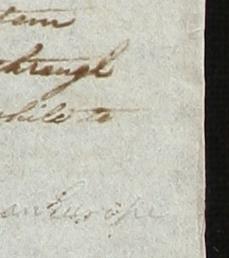 tem
through
while to
an Europe